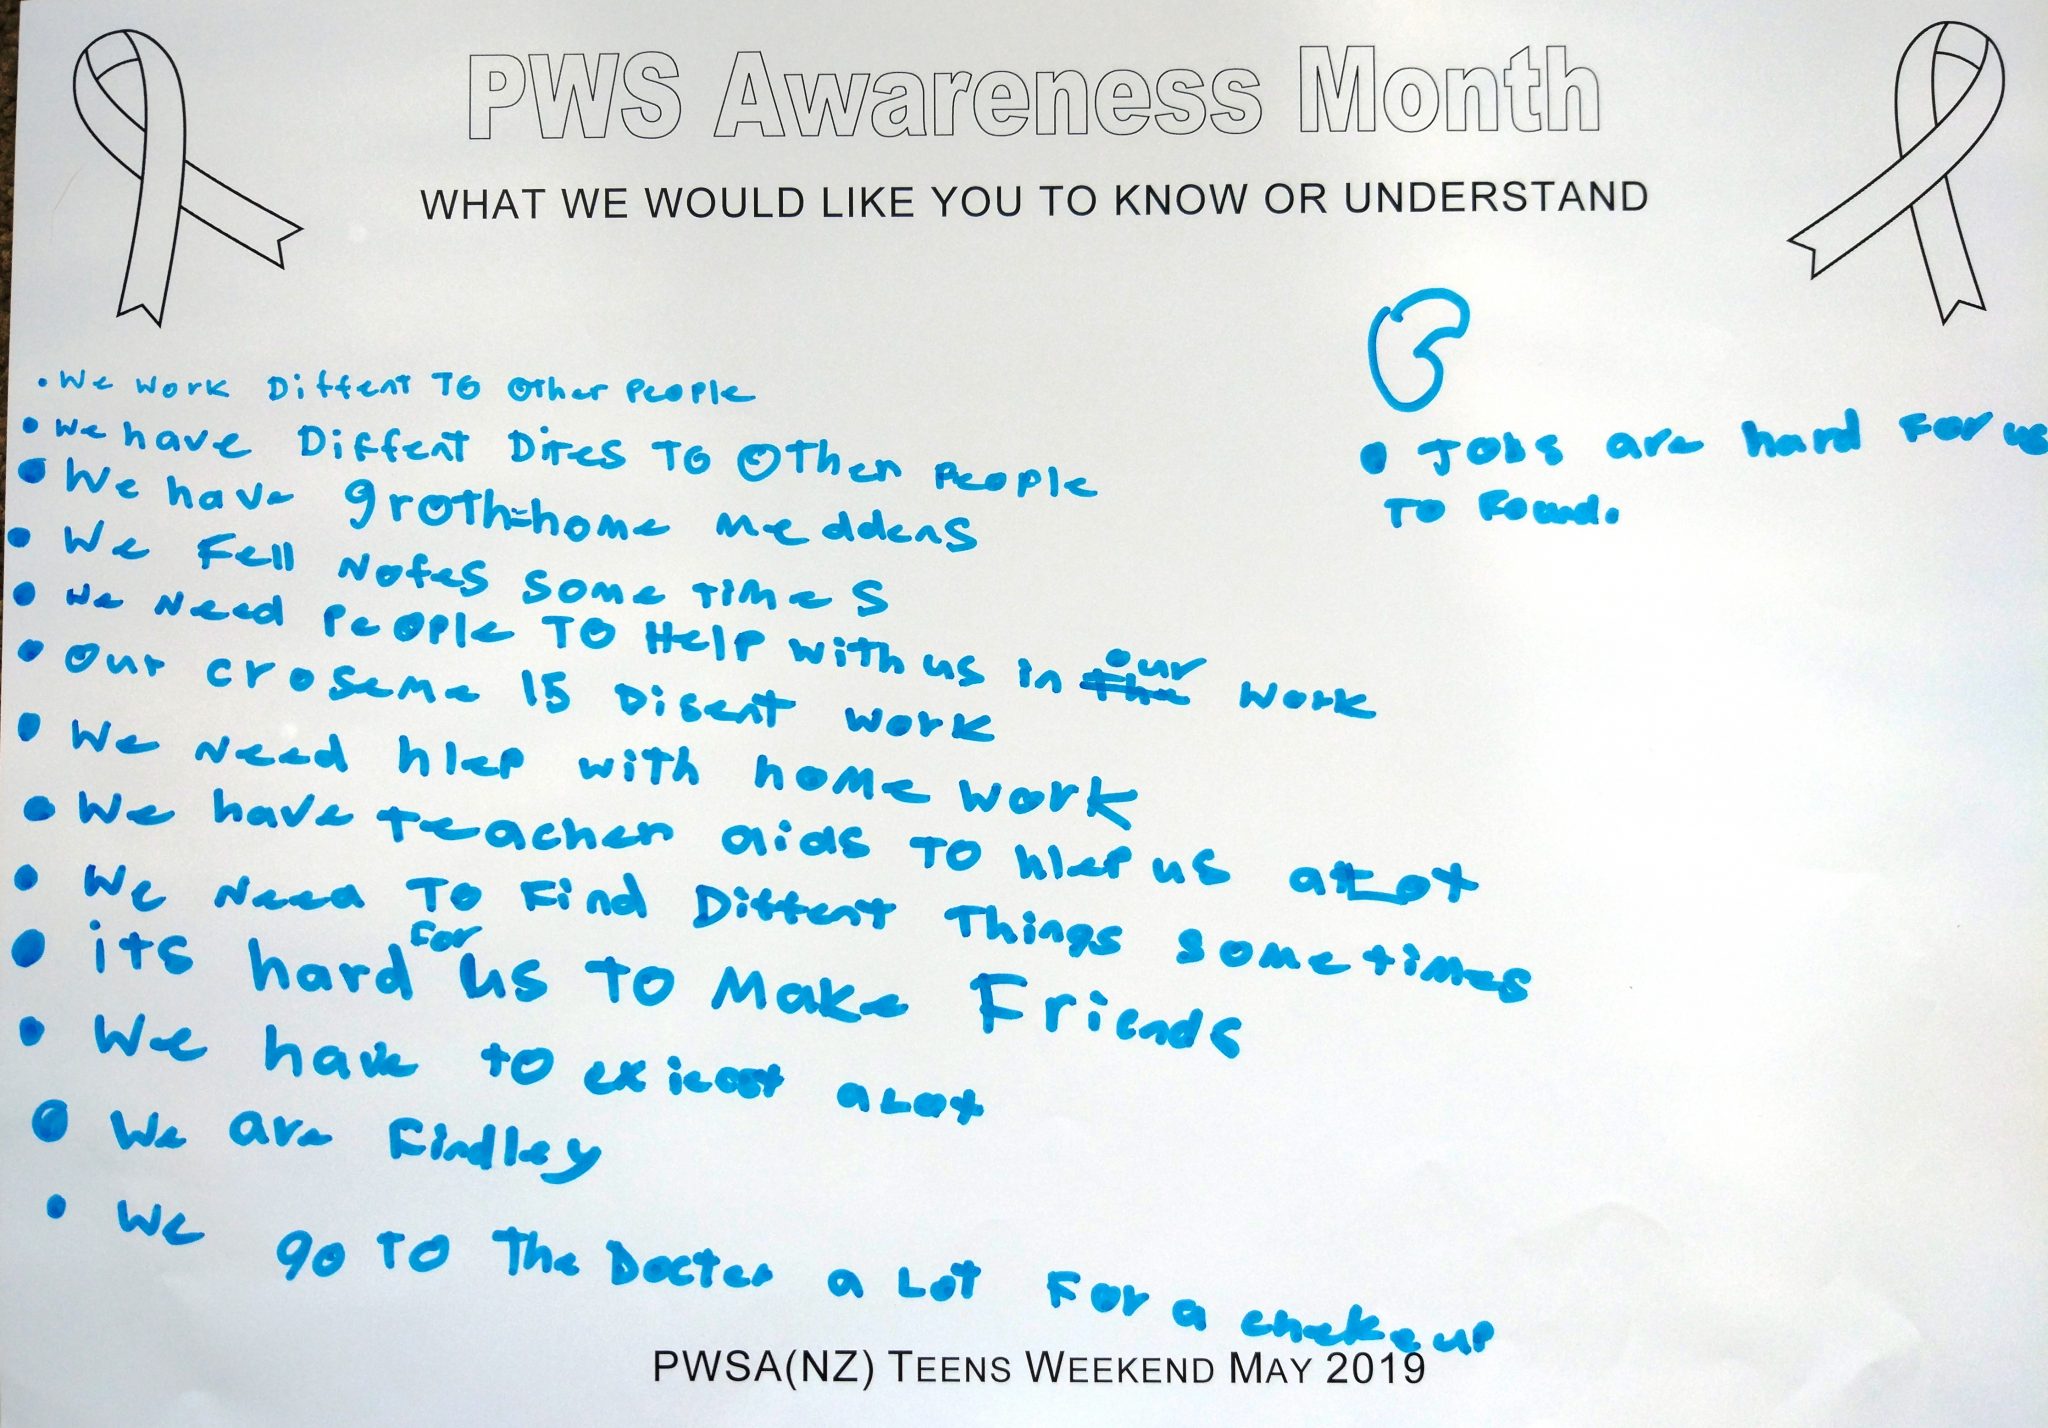 PWS Awareness Month
WHAT WE WOULD LIKE YOU TO KNOW OR UNDERSTAND
• We work Diffent To Other People
• We have Diffent Dites To Other People
• We have groth=home meddens
• We Fell Notes some times
• We Need People To Help with us in the our work
• Our croseme is Disent work
• We Need hlep with home work
• We have teacher aids To hlep us alot
• We Need To Find Diffent Things sometimes
• its hard for us To Make Friends
• We have to exicest alot
• We are Findley
• We go To The Docter a Lot For a chekeup
• Jobs are hard For us
To Found.
PWSA(NZ) TEENS WEEKEND MAY 2019